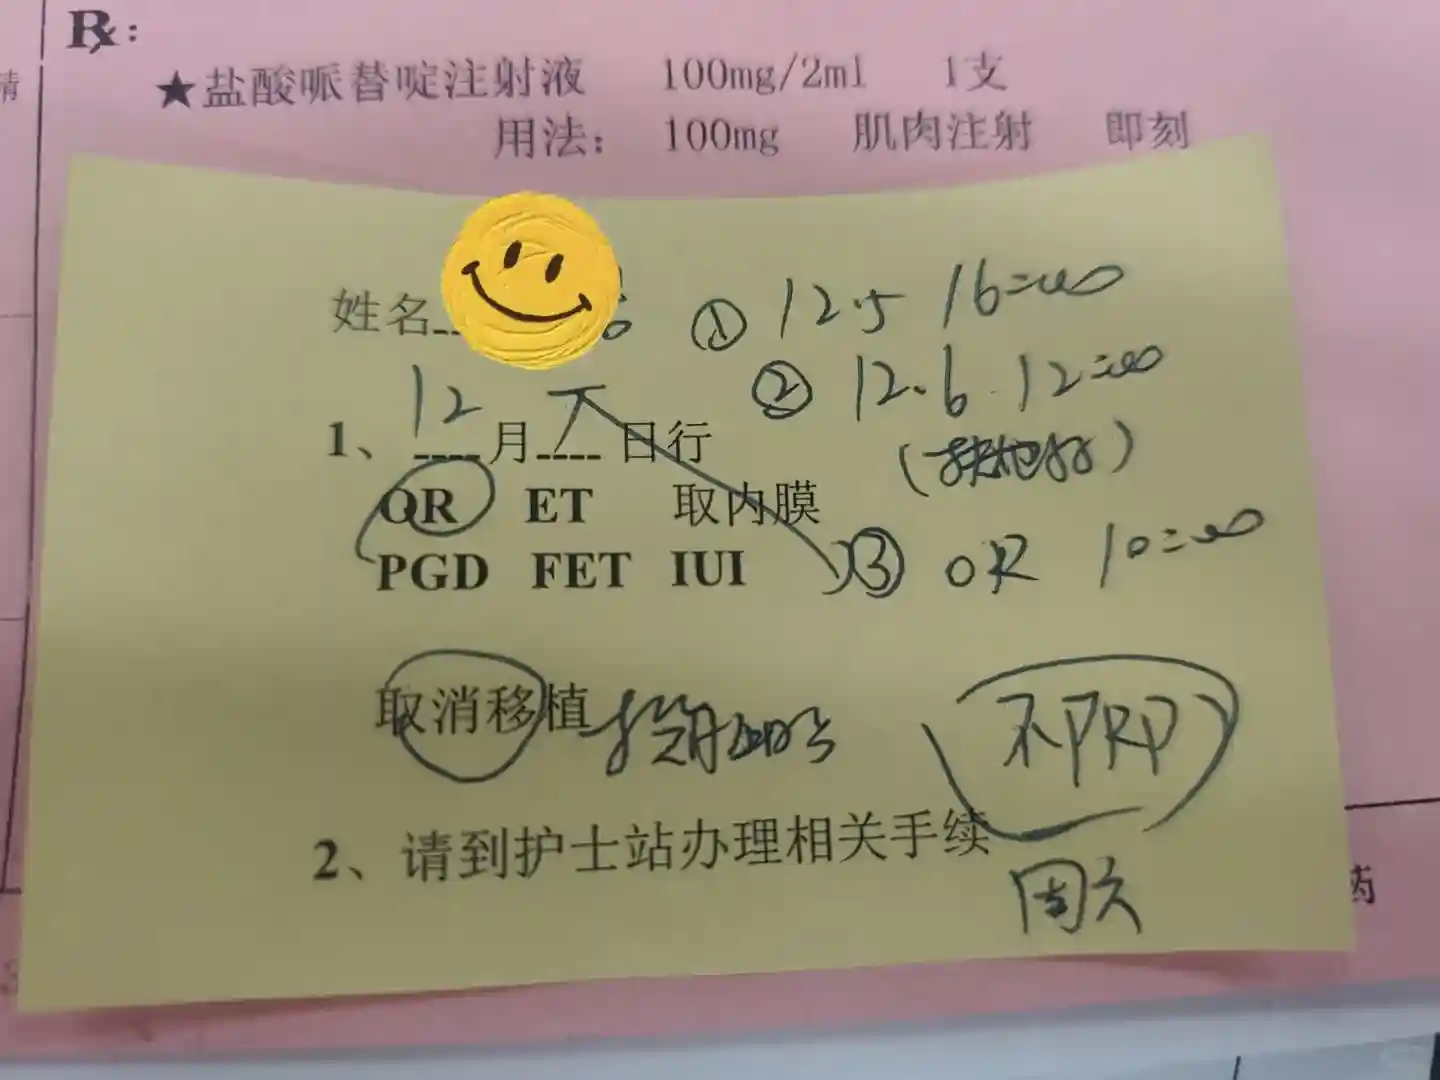 Rx:
★盐酸哌替啶注射液 100mg/2ml 1支
用法: 100mg 肌肉注射 即刻
姓名
① 12.5 16=00
② 12.6 12=00
1、12月 7 日行
OR ET 取内膜
③ OR 10=00
PGD FET IUI
取消移植
不PRP
2、请到护士站办理相关手续
周六
药
精